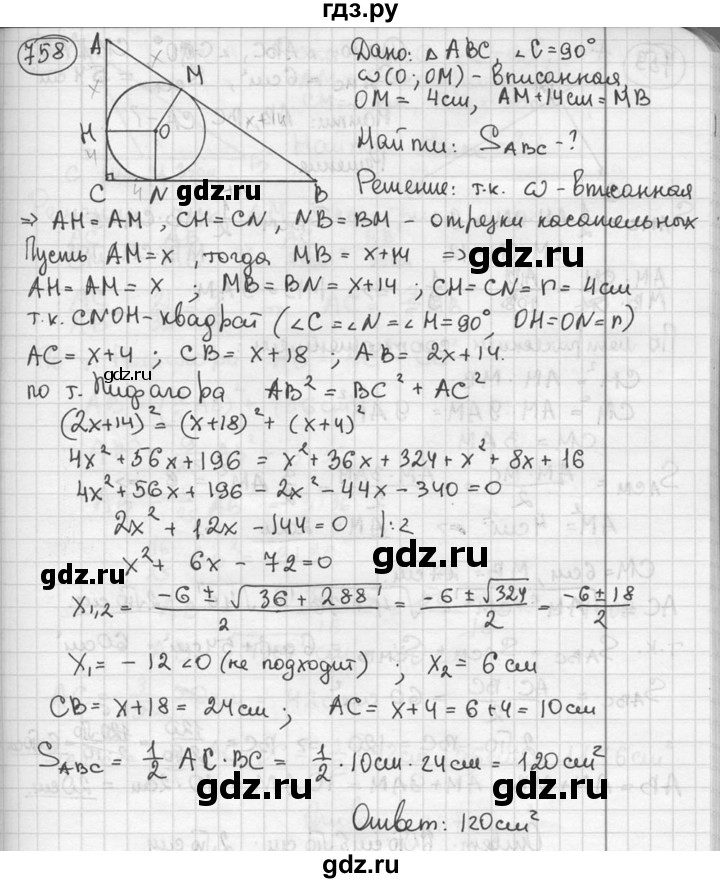 гдз.ру
758
Дано: △ ABC, ∠C=90°
ω(O; OM) - вписанная
OM = 4см, AM+14см=MB
Найти: S_ABC - ?
A
x
M
14+x
H
O
4
C
4
N
B
gdz.ru
Решение: т.к. ω - вписанная
⇒ AH=AM, CH=CN, NB=BM - отрезки касательных
Пусть AM=x, тогда MB = x+14 ⇒
gdz.ru
AH=AM=x ; MB=BN=x+14 ; CH=CN=r=4см
т.к. CNOH-квадрат (∠C=∠N=∠H=90°, OH=ON=r)
AC=x+4 ; CB=x+18 ; AB=2x+14.
gdz.ru
по т. Пифагора AB² = BC² + AC²
(2x+14)² = (x+18)² + (x+4)²
4x²+56x+196 = x²+36x+324+x²+8x+16
4x²+56x+196-2x²-44x-340=0
2x²+12x-144=0 |:2
gdz.ru
x²+6x-72=0
gdz.ru
x₁,₂ = (-6±√(36+288))/2 = (-6±√324)/2 = (-6±18)/2
x₁=-12<0 (не подходит) ; x₂=6см
CB=x+18=24см ; AC=x+4=6+4=10см
gdz.ru
S_ABC = 1/2 AC·BC = 1/2·10см·24см = 120см²
gdz.ru
gdz.ru
Ответ: 120см²
gdz.ru